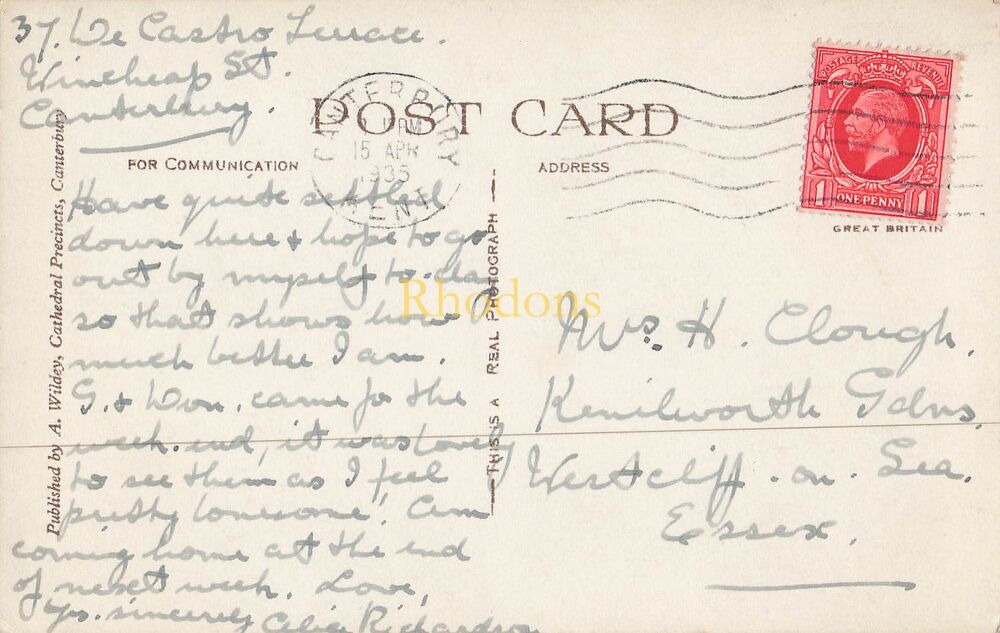 37. De Castro Terrace.
Wincheap St.
Canterbury.
POST CARD
FOR COMMUNICATION
ADDRESS
CANTERBURY
KENT
15 APR
1935
POSTAGE REVENUE
1 ONE PENNY 1
GREAT BRITAIN
Have quite settled
down here & hope to go
out by myself to-day
so that shows how
much better I am.
G. & Don. came for the
week-end, it was lovely
to see them as I feel
pretty lonesome. Am
coming home at the end
of next week. Love,
Yrs. sincerely Celia Richardson
Mrs. H. Clough.
Kenilworth Gdns,
Westcliff-on-Sea.
Essex.
Published by A. Wildey, Cathedral Precincts, Canterbury
THIS IS A REAL PHOTOGRAPH
Rhodons